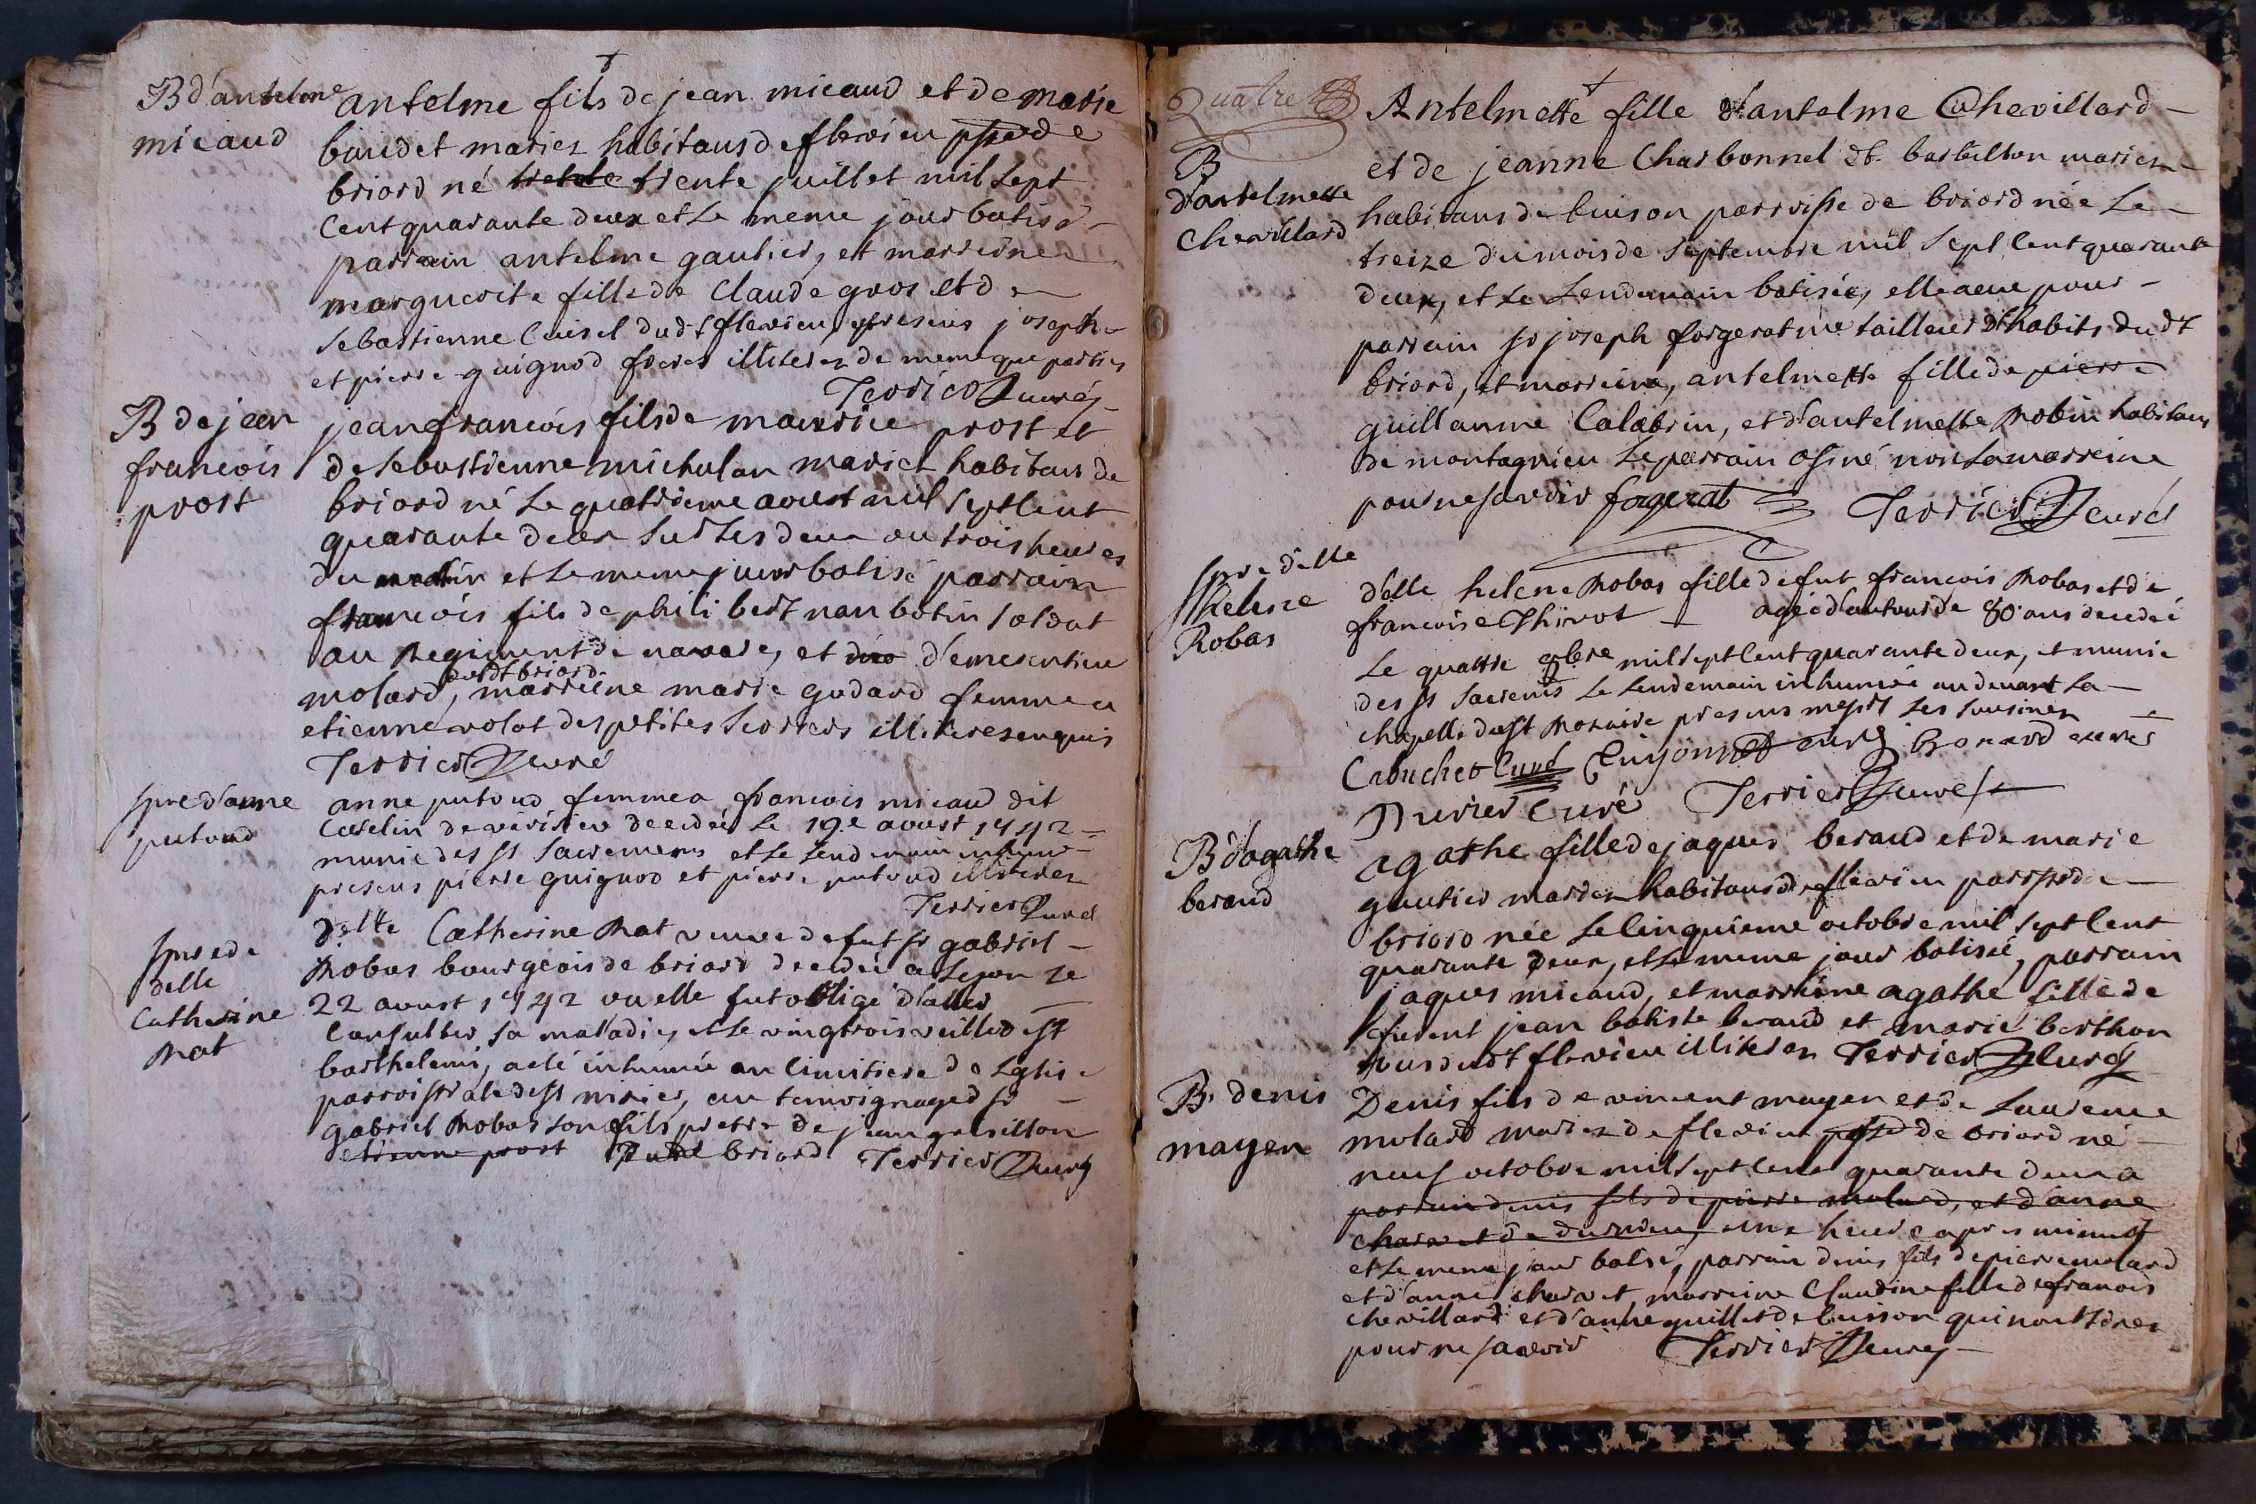 B d'antelme
micaud
antelme fils de jean micaud et de marie
baudet mariez habitans de flevieu psse de
briord né trente trente juillet mil sept
cent quarante deux et le meme jour batisé
parrain antelme gautier, et marreine
marguerite fille de Claude gros et de
sebastienne Cuisel dudt flevieu, presens joseph
et pierre guignod freres illiterez de meme que parties
Terrier Curé
B de jean
francois
prost
jean francois fils de maurice prost et
de sebastienne michalan mariez habitans de
briord né le quatrieme aoust mil sept cent
quarante deux sur les deux ou trois heures
du matin et le meme jour batisé parrain
francois fils de philibert nanbotin soldat
au Regiment de navare, et d'emerentiene
dudt briord
molard, marreine marie gudard femme a
etienne volat des petites illiteres enquis
Terrier Curé
spre d'anne
putoud
anne putoud femme a francois micaud dit
Coselin de vérisieu decedée le 19e aoust 1742
munie des sts sacremens et le lendemain inhumé
presens pierre guignod et pierre putoud illiterez
Terrier Curé
spre de
delle
Catherine
Rat
delle Catherine Rat veuve de fut sr gabriel
Robas bourgeois de briord decedée a Lyon le
22 aoust 1742 ou elle fut obligé d'aller
Consulter sa maladie, et le vingtrois veille de st
barthelemi, a été inhumée au cimitiere de l'Eglise
parroissiale de st nisier, au temoignage de sr
gabriel Robas son fils pretre de jean grosillon
etienne prost dudt briord Terrier Curé
Quatre
B
d'antelmette
Chevillard
Antelmette fille d'antelme Chevillard
et de jeanne Charbonnel dt barbillon mariez
habitans de buison parroisse de briord née le
treize du mois de septembre mil sept cent quarante
deux, et le lendemain batisée, elle a eu pour
parrain sr joseph forgerat me tailleur d'habits dudt
briord, et marreine, antelmette fille de pierre
guillaume Calabrin, et d'antelmette Robin habitans
de montagnieu le parrain a siné non la marreine
pour ne savoir forgerat Terrier Curé
spre delle
helene
Robas
delle helene Robas fille de fut francois Robas et de
francoise Thirot agée d'autour de 80 ans decedée
le quatre 8bre mil sept cent quarante deux, et munie
des sts sacremts le lendemain inhumée au devant la
chapelle du st Rosaire presens messrs les sousinez
Cabuchet Curé Guyonnet curé bonard
Durier Curé Terrier Curé
B d'agathe
beraud
agathe fille de jaques beraud et de marie
gautier mariez habitans de flevieu parrsse de
briord née le cinquieme octobre mil sept cent
quarante deux, et le meme jour batisée, parrain
jaques micaud, et marreine agathe fille de
furent jean batiste beraud et marie berthon
tous dudt flevieu illiterez Terrier Curé
B. denis
mayen
Denis fils de vincent mayen et de Laurence
molard mariez de flevieu psse de briord né
neuf octobre mil sept cent quarante deux a
parrain denis fils de pierre molard, et d'anne
charvet de une heure apres minuit
et le meme jour batisé, parrain denis fils de pierre molard
et d'anne charvet marreine Claudine fille de francois
chevillard et d'anne quillet de buisson qui n'ont sinez
pour ne savoir Terrier Curé